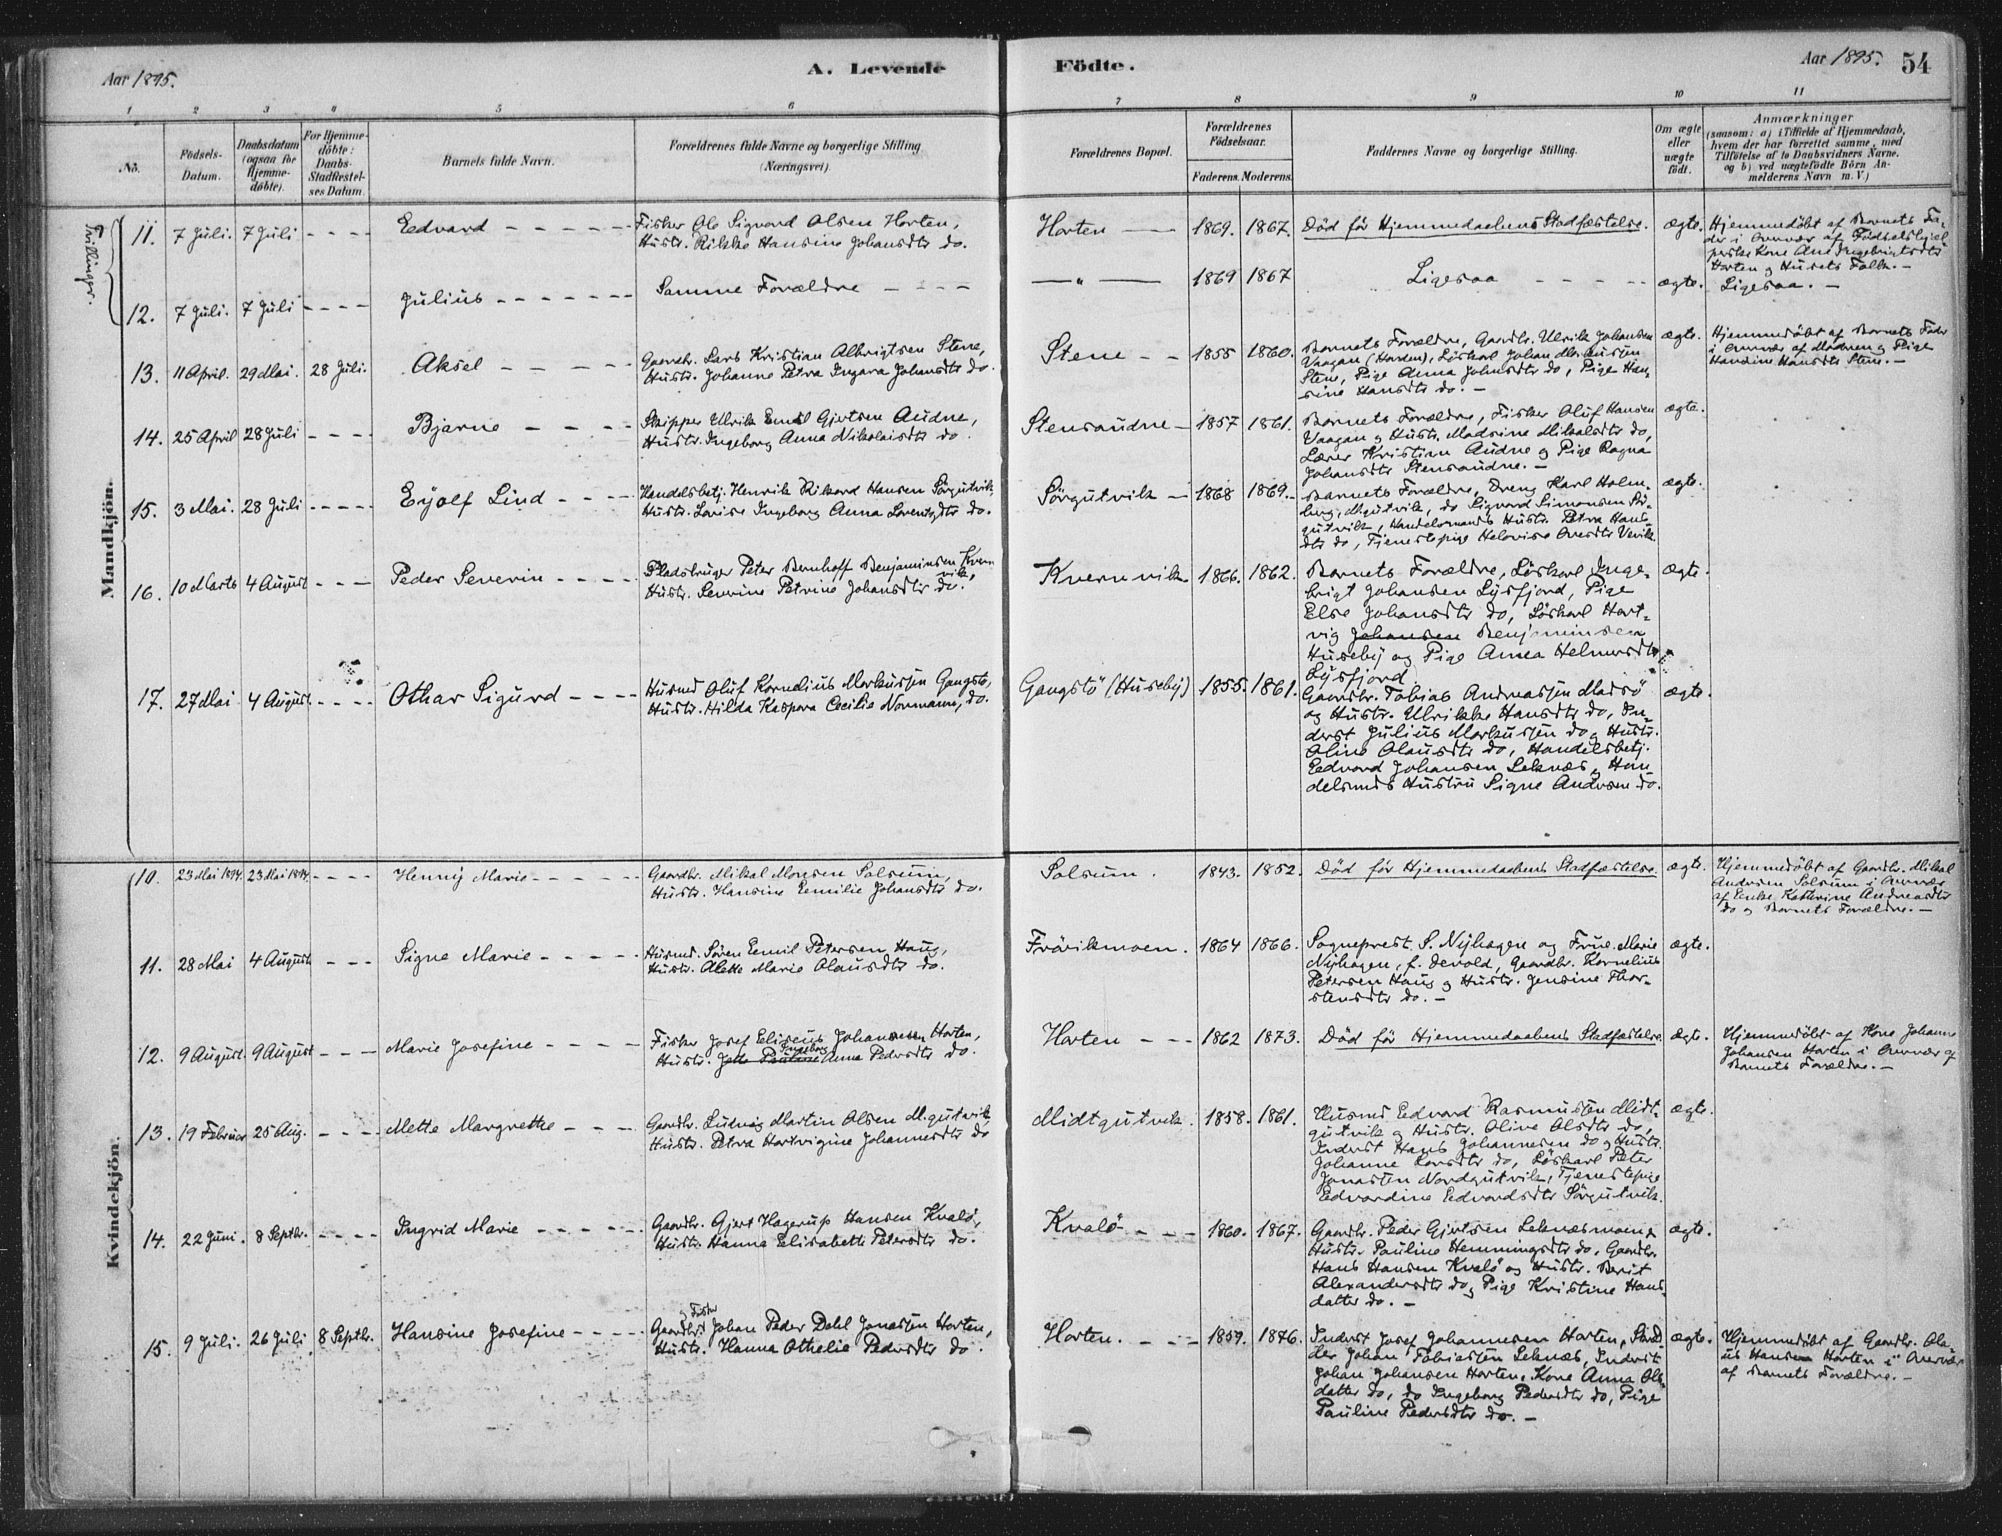 Aar 1895.
A. Levende
Födte.
Aar 1895.
54
1 2 3 4 5 6 7 8 9 10 11
No.
Födsels-
Datum.
Daabsdatum
(ogsaa for
Hjemme-
döbte).
For Hjemme-
döbte:
Daabs-
Stadfæstel-
ses Datum.
Barnets fulde Navn.
Forældrenes fulde Navne og borgerlige Stilling
(Næringsvei).
Forældrenes Bopæl.
Forældrenes
Födselsaar.
Faderens. Moderens.
Faddernes Navne og borgerlige Stilling.
Om ægte
eller
uægte
födt.
Anmærkninger
(saasom: a) i Tilfælde af Hjemmedaab,
hvem der har forrettet samme, med
Tilföielse af to Daabsvidners Navne.
og b) ved uægtefödte Börn An-
melderens Navn m. V.)
Tvillinger.
Mandkjön.
11. 7 Juli. 7 Juli - - - - Edvard - - - - - -
Fisker Ole Sigvard Olsen Horten,
Hustr. Rikke Hansine Johansdtr do.
Horten 1869. 1867. Död för Hjemmedaabens Stadfæstelse. ægte.
Hjemmedöbt af Barnets Fa-
der i Overvær af Födselshjæl-
perske Kone Ane Ingebrigtsdtr
Horten og Husets Folk. -
12. 7 Juli. 7 Juli - - - - Julius - - - - - - -
Samme Forældre - - - -
— " — 1869 1867 Ligesaa - - - - ægte. Ligesaa. -
13. 11 April. 29 Mai. 28 Juli. Aksel - - - - -
Gaardbr. Lars Kristian Albrigtsen Stene,
Hustr. Johanne Petra Ingara Johansdtr do.
Stene - - 1855 1860.
Barnets Forældre, Gaardbr. Ulrik Johansen
Vaagan (Horten), Löskarl Johan Albrigtsen
Stene, Pige Anna Johnsdtr do, Pige Han-
sine Hansdtr do. -
ægte.
Hjemmedöbt af Barnets Fader
i Overvær af Moderen og Pige
Hansine Hansdtr Stene. -
14. 25 April 28 Juli - - - - Bjarne - - - -
Skipper Ulrik Emil Gjertsen Audne,
Hustr. Ingeborg Anna Nikolaisdtr do.
Stensaudne - 1857 1861.
Barnets Forældre, Fisker Oluf Hansen
Vaagan og Hustr. Madsine Mikalsdtr do,
Lærer Kristian Audne og Pige Ragna
Johansdtr Stensaudne. -
ægte.
15. 3 Mai. 28 Juli - - - - Eyolf Lind - - - -
Handelsbetj. Henrik Rikard Hansen Sörgutvik,
Hustr. Lovise Ingeborg Anna Lorentsdtr do.
Sörgutvik - 1868 1869.
Barnets Forældre, Dreng Karl Holm-
berg, M.gutvik, do Sigvard Simonsen Sör-
gutvik, Handelsmands Hustr. Petra Hans-
dtr do, Tjenestepige Helovise
ægte.
16. 10 Marts 4 August - - - Peder Severin - - - -
Pladsbruger Peter Bernhoff Benjaminsen Kvern-
vik,
Hustr. Severine Petrine Johansdtr do.
Kvernvik. 1866. 1862.
Barnets Forældre, Löskarl Inge-
brigt Johansen Lysfjord, Pige
Else Johansdtr do, Löskarl Hart-
vig Johansen Benjaminsen
Huseby og Pige Annea Helmersdtr
Lysfjord.
ægte.
17. 27 Mai 4 August. - - - - Othar Sigurd - - - -
Husmd Oluf Kornelius Markussen Gangstö,
Hustr. Hilda Kaspara Cecilie Normann, do.
Gangstö (Huseby) 1855. 1861.
Gaardbr. Tobias Andreassen Madsö
og Hustr. Ulrikke Hansdtr do, In-
derst Julius Markussen do og Hustr.
Oline Olausdtr do, Handelsbetj.
Edvard Johansen Leknæs, Han-
delsmds Hustru Signe Andersen do.
ægte.
Kvindekjön.
10. 23 Mai 1894. 23 Mai 1894. - - - - Henny Marie - - - - -
Gaardbr. Mikal Monsen Solsum,
Hustr. Hansine Emilie Johansdtr do.
Solsum. 1843. 1852. Död för Hjemmedaabens Stadfæstelse. ægte.
Hjemmedöbt af Gaardbr. Mikal
Andersen Solsum i Overvær
af Enke Katherine Andreasdtr
do og Barnets Forældre. -
11. 28 Mai 4 August - - - Signe Marie - - - - -
Husmd. Sören Emil Petersen Haug,
Hustr. Alette Marie Olausdtr do.
Frövikmoen. 1864 1866.
Sogneprest S. Nyhagen og Frue Marie
Nyhagen, f. Devold, Gaardbr. Kornelius
Petersen Haug og Hustr. Jensine Thor-
stensdtr do. -
ægte.
12. 9 August. 9 August - - - Marie Josefine - - - -
Fisker Josef Eliseus Johannesen Horten,
Ingeborg
Hustr. Jette Pauline Anna Pedersdtr do.
Horten - - - 1862 1873. Död för Hjemmedaabens Stadfæstelse. ægte.
Hjemmedöbt af Kone Johanne
Johansen Horten i Overvær af
Barnets Forældre. -
13. 19 Februar 25 Aug. - - - Mette Margrethe - - -
Gaardbr. Ludvig Martin Olsen M.gutvik,
Hustr. Petra Hartvigine Johannesdtr do
Midtgutvik. 1858. 1861.
Husmd Edvard Rasmussen Midt-
gutvik og Hustr. Olive Olsdtr do,
Inderst Hans Johannesen do og Hustr.
Johanne Larsdtr do, Löskarl Peter
Jonassen Nordgutvik, Tjenestepige
Edvardine Edvardsdtr Sörgutvik.
ægte.
14. 22 Juni. 8 Septbr. - - - - Ingrid Marie - - - - -
Gaardbr. Gjert Hagerup Hansen Kvalö,
Hustr. Hanna Elisabeth Petersdtr do.
Kvalö - - - 1860. 1867.
Gaardbr. Peder Gjertsen Leknæsmoen og
Hustr. Pauline Hemmingsdtr do, Gaardbr.
Hans Hansen Kvalö og Hustr. Berit
Alexandersdtr do og Pige Kristine Hans-
datter do. -
ægte.
15. 9 Juli. 26 Juli 8 Septbr. Hansine Josefine - - - -
og Fisker
Gaardbr. Johan Peder Dahl Jonassen Horten,
Hustr. Hanna Othelie Pedersdtr do.
Horten. - - - 1859. 1876.
Inderst Josef Johannesen Horten,
Johan Tobiassen Leknæs, Inderst
Johan Johansen Horten, Kone Anna Ols-
datter do, do Ingeborg Pedersdtr do, Pige
Pauline Pedersdtr do. -
ægte.
Hjemmedöbt af Gaardbr. Ola-
us Hansen Horten i Overvær
af Barnets Forældre. -